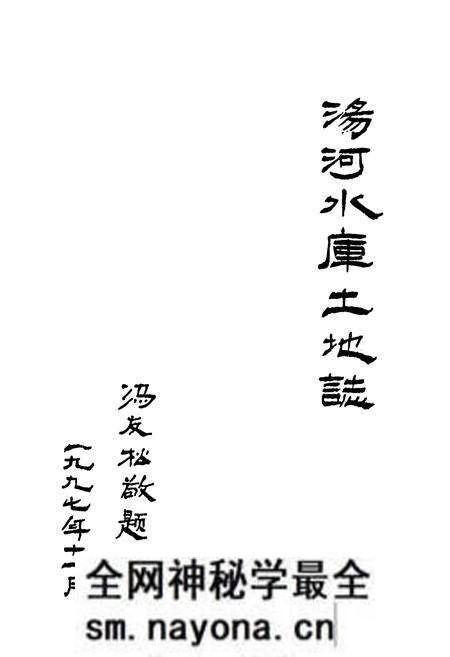 湯河水庫土地誌
冯友松敬题
一九九七年十一月
全网神秘学最全
sm.nayona.cn